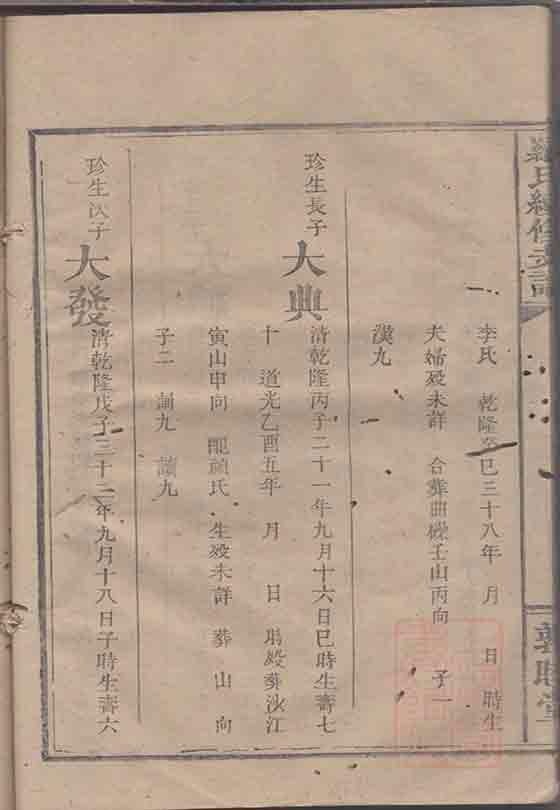 羅氏續修支譜
李氏 乾隆癸巳三十八年 月 日 時生
夫婦歿未詳 合葬曲磯壬山丙向 子一
漢九
珍生長子 大典 清乾隆丙子二十一年九月十六日巳時生壽七
十 道光乙酉五年 月 日 時歿葬沙江
寅山申向 配顏氏 生歿未詳 葬 山 向
子二 九 九
珍生次子 大發 清乾隆戊子三十三年九月十八日子時生壽六